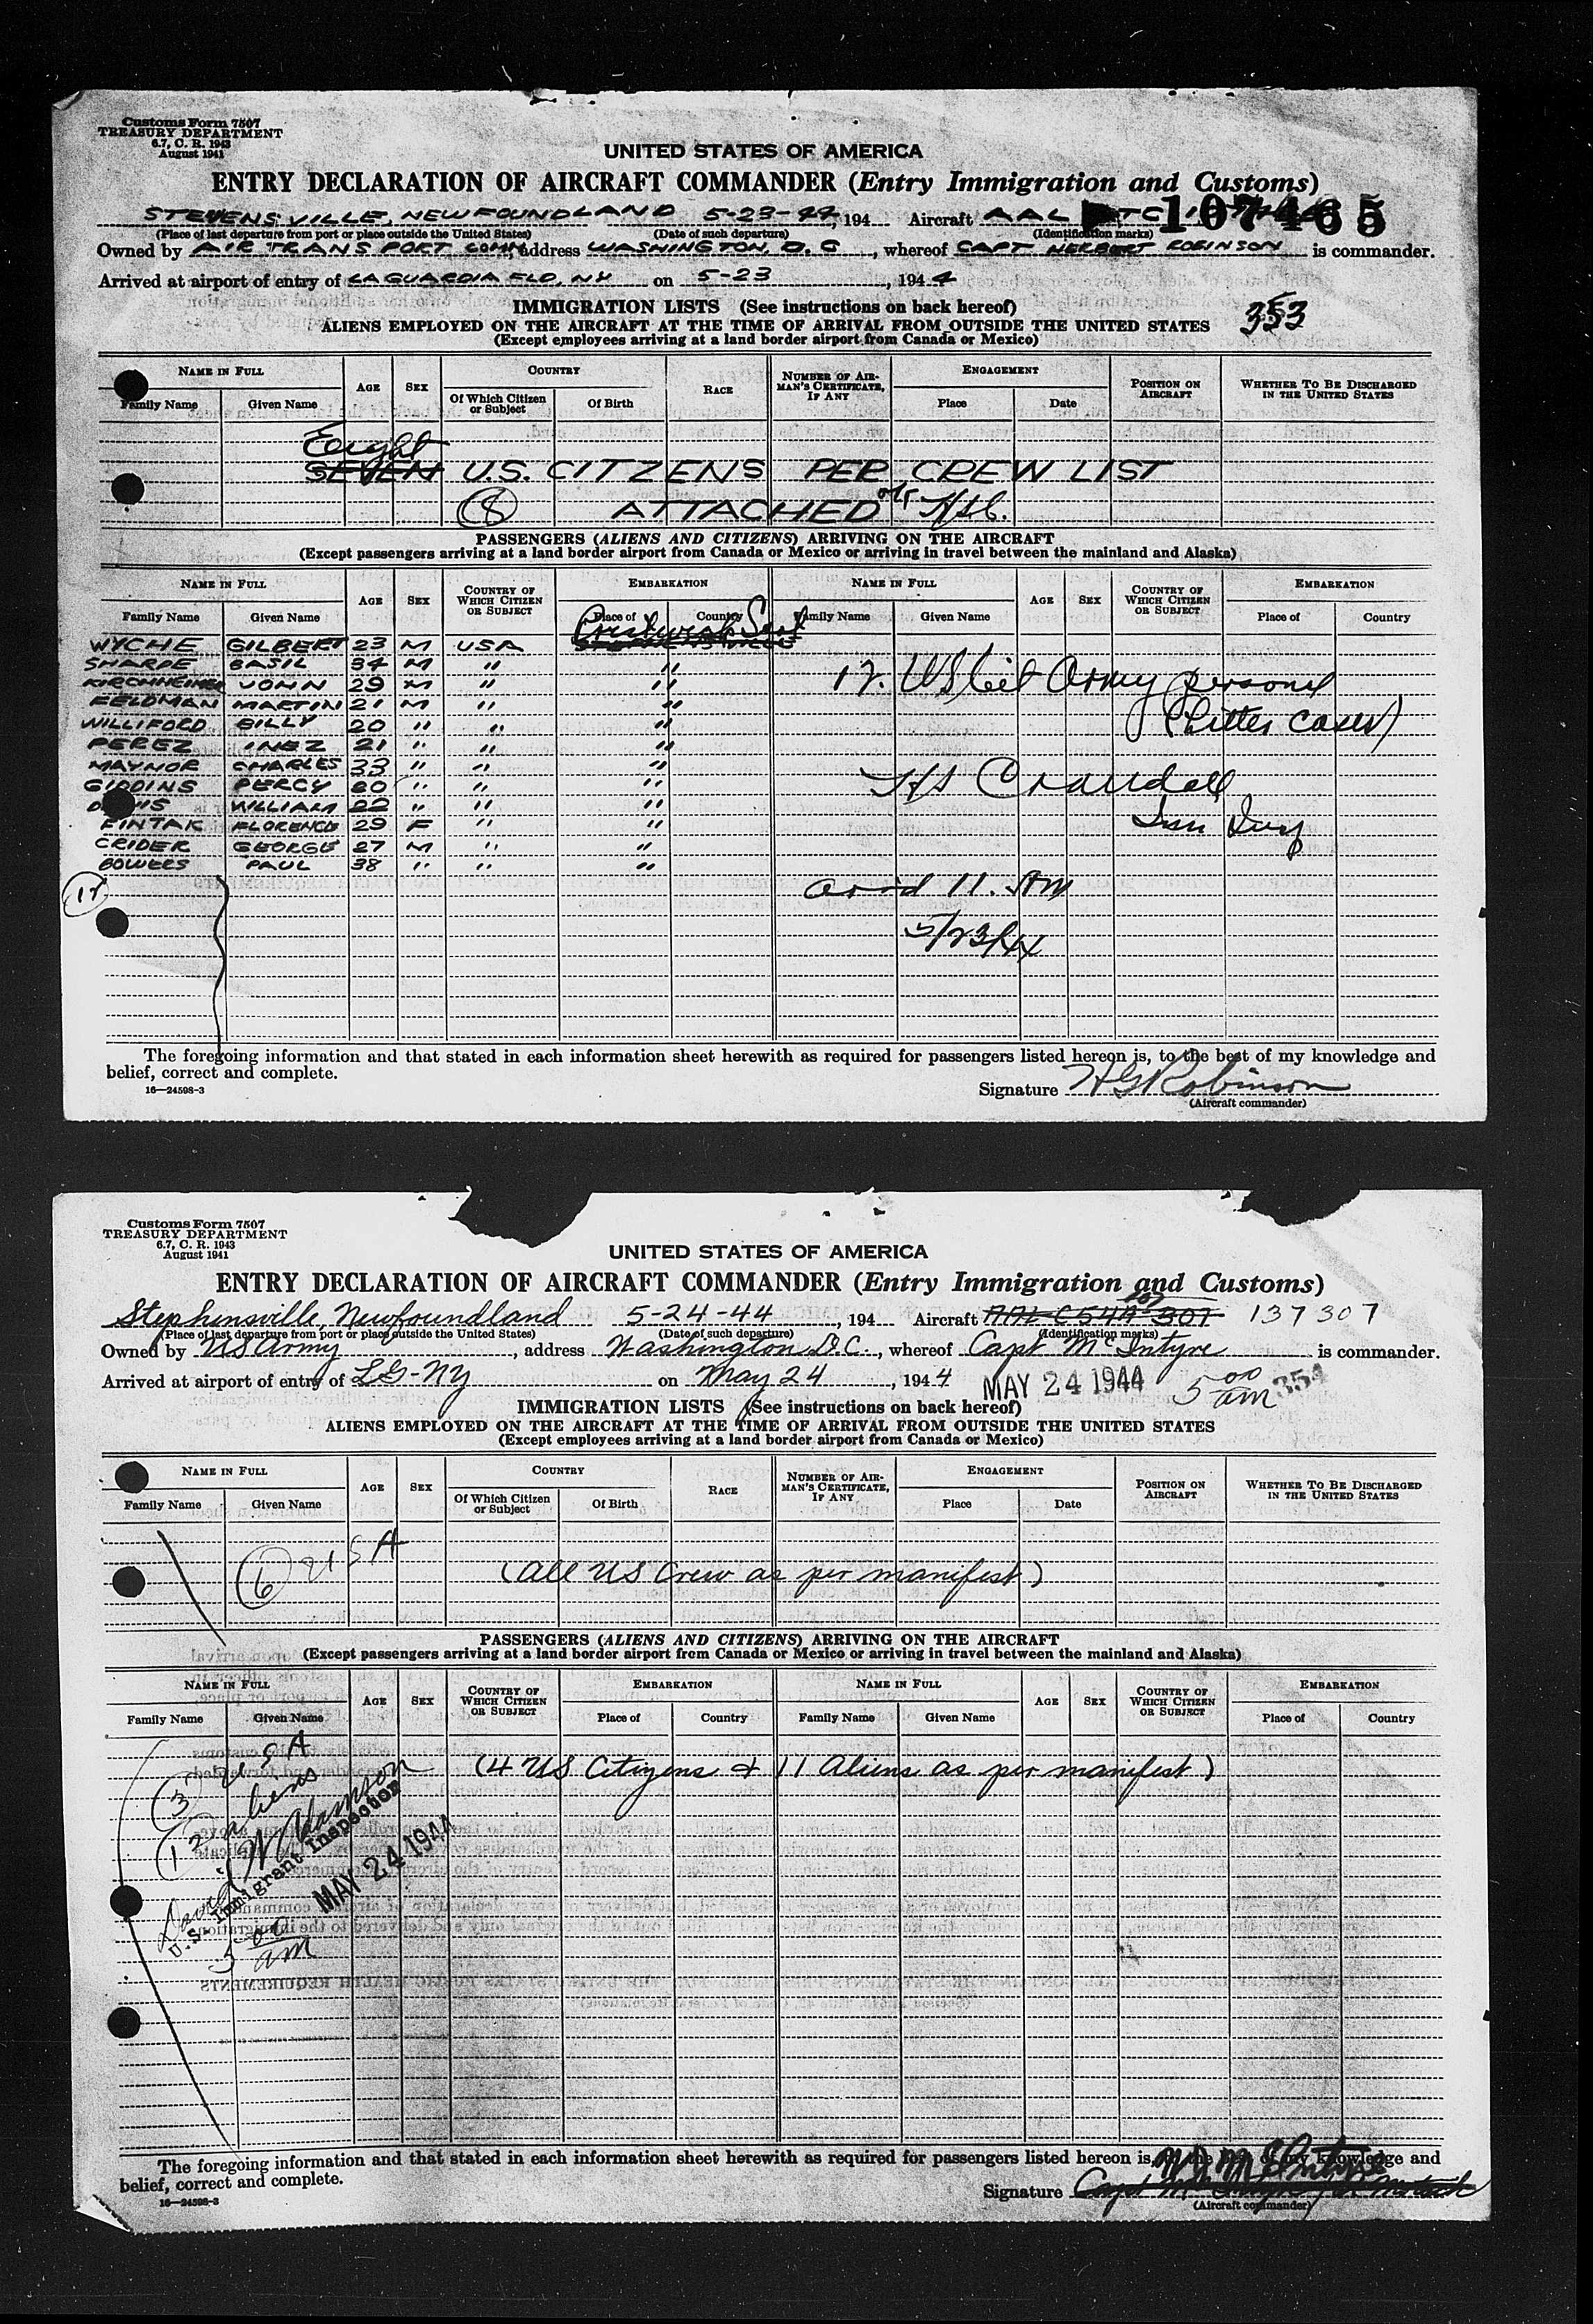 Customs Form 7507
TREASURY DEPARTMENT
6.7, C. R. 1943
August 1941
UNITED STATES OF AMERICA
ENTRY DECLARATION OF AIRCRAFT COMMANDER (Entry Immigration and Customs)
STEVENSVILLE, NEWFOUNDLAND 5-23-44, 194 Aircraft AAL 107465
(Place of last departure from port or place outside the United States) (Date of such departure) (Identification marks)
Owned by AIR TRANSPORT COMM, address WASHINGTON, D. C., whereof CAPT HERBERT ROBINSON is commander.
Arrived at airport of entry of LAGUARDIA FLD, NY on 5-23, 1944
IMMIGRATION LISTS (See instructions on back hereof)
353
ALIENS EMPLOYED ON THE AIRCRAFT AT THE TIME OF ARRIVAL FROM OUTSIDE THE UNITED STATES
(Except employees arriving at a land border airport from Canada or Mexico)
NAME IN FULL AGE SEX COUNTRY RACE NUMBER OF AIRMAN'S CERTIFICATE, IF ANY ENGAGEMENT POSITION ON AIRCRAFT WHETHER TO BE DISCHARGED IN THE UNITED STATES
Family Name Given Name Of Which Citizen or Subject Of Birth Place Date
Eight
SEVEN U.S. CITZENS PER CREW LIST
8 ATTACHED
PASSENGERS (ALIENS AND CITIZENS) ARRIVING ON THE AIRCRAFT
(Except passengers arriving at a land border airport from Canada or Mexico or arriving in travel between the mainland and Alaska)
NAME IN FULL AGE SEX COUNTRY OF WHICH CITIZEN OR SUBJECT EMBARKATION NAME IN FULL AGE SEX COUNTRY OF WHICH CITIZEN OR SUBJECT EMBARKATION
Family Name Given Name Place of Country Family Name Given Name Place of Country
Prestwick Scot
WYCHE GILBERT 23 M USA
SHARPE BASIL 34 M " "
KIRCHHEIMER JOHN 29 M " " 12. US Cit Army personel
FELDMAN MARTIN 21 M " "
WILLIFORD BILLY 20 " " " (Litter cases)
PEREZ INEZ 21 " " "
MAYNOR CHARLES 33 " " "
GIDDINS PERCY 20 " " " HS Crandall
DAVIS WILLIAM 22 " " "
FINTAK FLORENCE 29 F " " Imm Insp
CRIDER GEORGE 27 M " "
BOWERS PAUL 38 " " "
12 arrd 11. AM
5/23/44
The foregoing information and that stated in each information sheet herewith as required for passengers listed hereon is, to the best of my knowledge and
belief, correct and complete.
16—24598-3
Signature HG Robinson
(Aircraft commander)
Customs Form 7507
TREASURY DEPARTMENT
6.7, C. R. 1943
August 1941
UNITED STATES OF AMERICA
ENTRY DECLARATION OF AIRCRAFT COMMANDER (Entry Immigration and Customs)
Stephensville, Newfoundland 5-24-44, 194 Aircraft AAL C54A-307 137307
(Place of last departure from port or place outside the United States) (Date of such departure) (Identification marks)
Owned by US Army, address Washington D.C., whereof Capt McIntyre is commander.
Arrived at airport of entry of LG-NY on May 24, 1944 MAY 24 1944 5 00 am 354
IMMIGRATION LISTS (See instructions on back hereof)
ALIENS EMPLOYED ON THE AIRCRAFT AT THE TIME OF ARRIVAL FROM OUTSIDE THE UNITED STATES
(Except employees arriving at a land border airport from Canada or Mexico)
NAME IN FULL AGE SEX COUNTRY RACE NUMBER OF AIRMAN'S CERTIFICATE, IF ANY ENGAGEMENT POSITION ON AIRCRAFT WHETHER TO BE DISCHARGED IN THE UNITED STATES
Family Name Given Name Of Which Citizen or Subject Of Birth Place Date
6 USA
(All US Crew as per manifest)
PASSENGERS (ALIENS AND CITIZENS) ARRIVING ON THE AIRCRAFT
(Except passengers arriving at a land border airport from Canada or Mexico or arriving in travel between the mainland and Alaska)
NAME IN FULL AGE SEX COUNTRY OF WHICH CITIZEN OR SUBJECT EMBARKATION NAME IN FULL AGE SEX COUNTRY OF WHICH CITIZEN OR SUBJECT EMBARKATION
Family Name Given Name Place of Country Family Name Given Name Place of Country
3 USA
(4 US Citizens & 11 Aliens as per manifest)
12 aliens
David W Adamson
U.S. Immigrant Inspector
MAY 24 1944
5 00 am
The foregoing information and that stated in each information sheet herewith as required for passengers listed hereon is, to the best of my knowledge and
belief, correct and complete.
16—24598-3
Signature
(Aircraft commander)